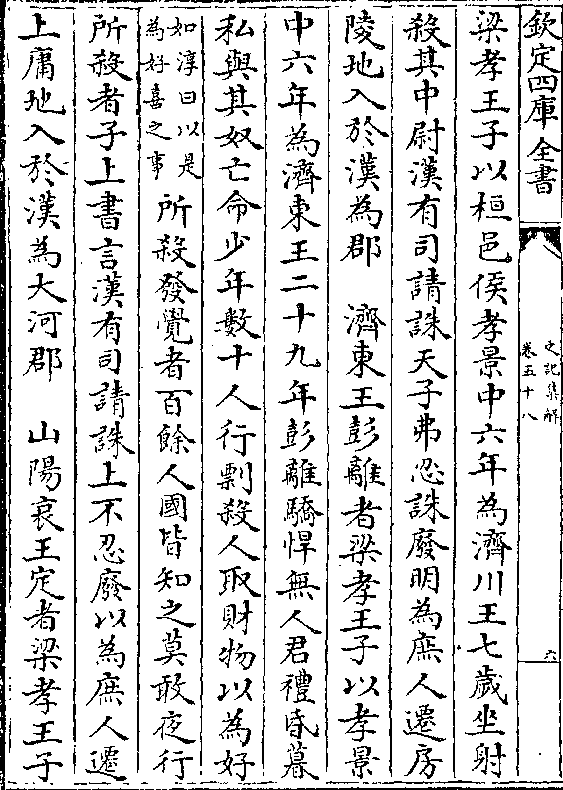 欽定四庫全書
史記集解
卷五十八
六
梁孝王子以桓邑侯孝景中六年為濟川王七歲坐射
殺其中尉漢有司請誅天子弗忍誅廢明為庶人遷房
陵地入於漢為郡　濟東王彭離者梁孝王子以孝景
中六年為濟東王二十九年彭離驕悍無人君禮昏暮
私與其奴亡命少年數十人行剽殺人取財物以為好
如淳曰以是
為好喜之事
所殺發覺者百餘人國皆知之莫敢夜行
所殺者子上書言漢有司請誅上不忍廢以為庶人遷
上庸地入於漢為大河郡　山陽哀王定者梁孝王子